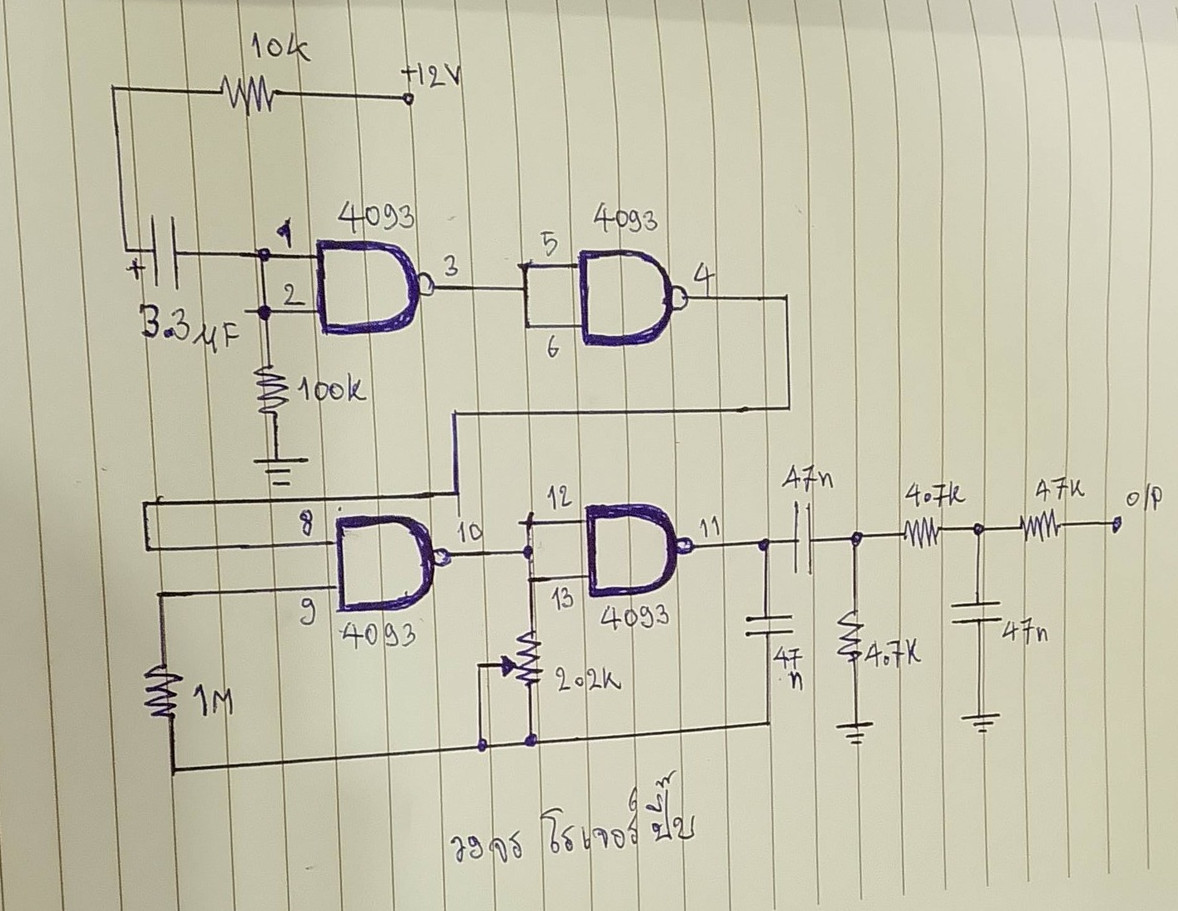 10k
+12V
4093
4093
1
3
5
4
+
2
3.3μF
6
100k
47n
8
10
12
11
4.7k
47K
O/P
9
13
4093
4093
1M
2.2k
47
n
4.7K
47n
วงจร โรเจอร์ปี๊บ